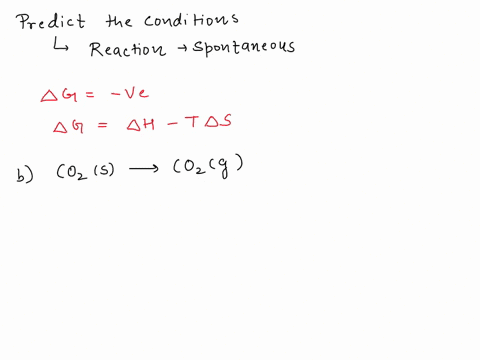 Predict the conditions
↳ Reaction → spontaneous
△G = -Ve
△G = △H - T△S
b) CO₂ (s) ⟶ CO₂ (g)